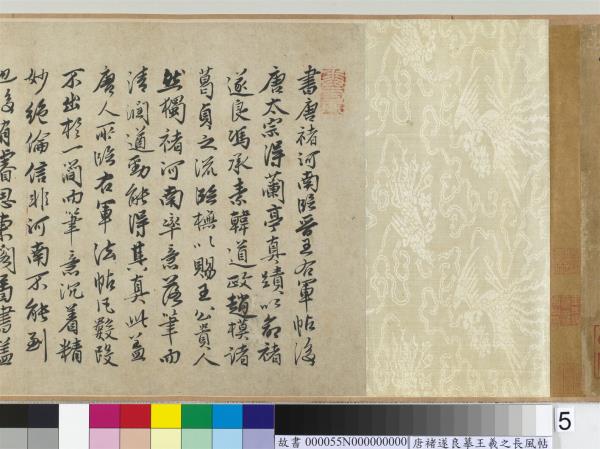 書唐褚河南臨晉王右軍帖後
唐太宗得蘭亭真蹟以命褚
遂良馮承素韓道政趙模諸
葛貞之流臨橅以賜王公貴人
然獨褚河南率意落筆而
清潤遒勁能得其真此蓋
唐人所臨右軍法帖凡數段
不出於一簡而筆意沉着精
妙絕倫信非河南不能到
也後有睿思東閣圖書蓋
5
故書 000055N000000000 唐褚遂良摹王羲之長風帖